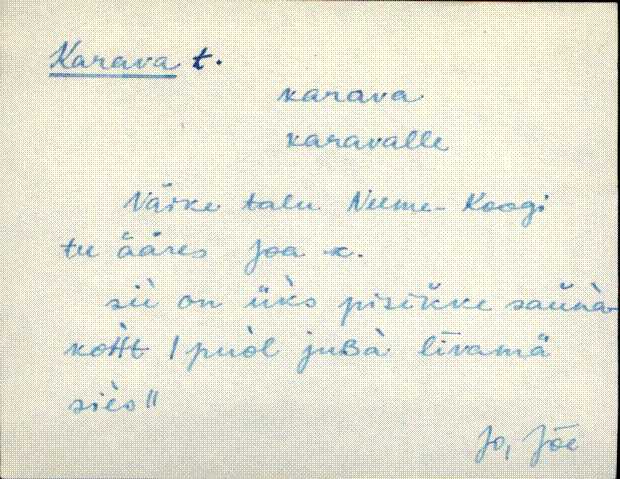 Karava t.
karava
karavalle
Väike talu Neeme-Koogi
tee ääres Joa k.
siì on üks pisikke saùnà
kòtt / puòl jubà līvamä
siès //
Jo, Jõe